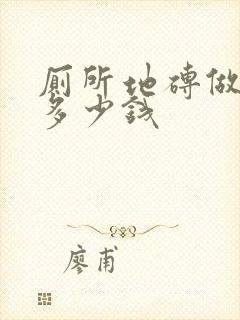 厕所地砖做
多少钱
廖甫